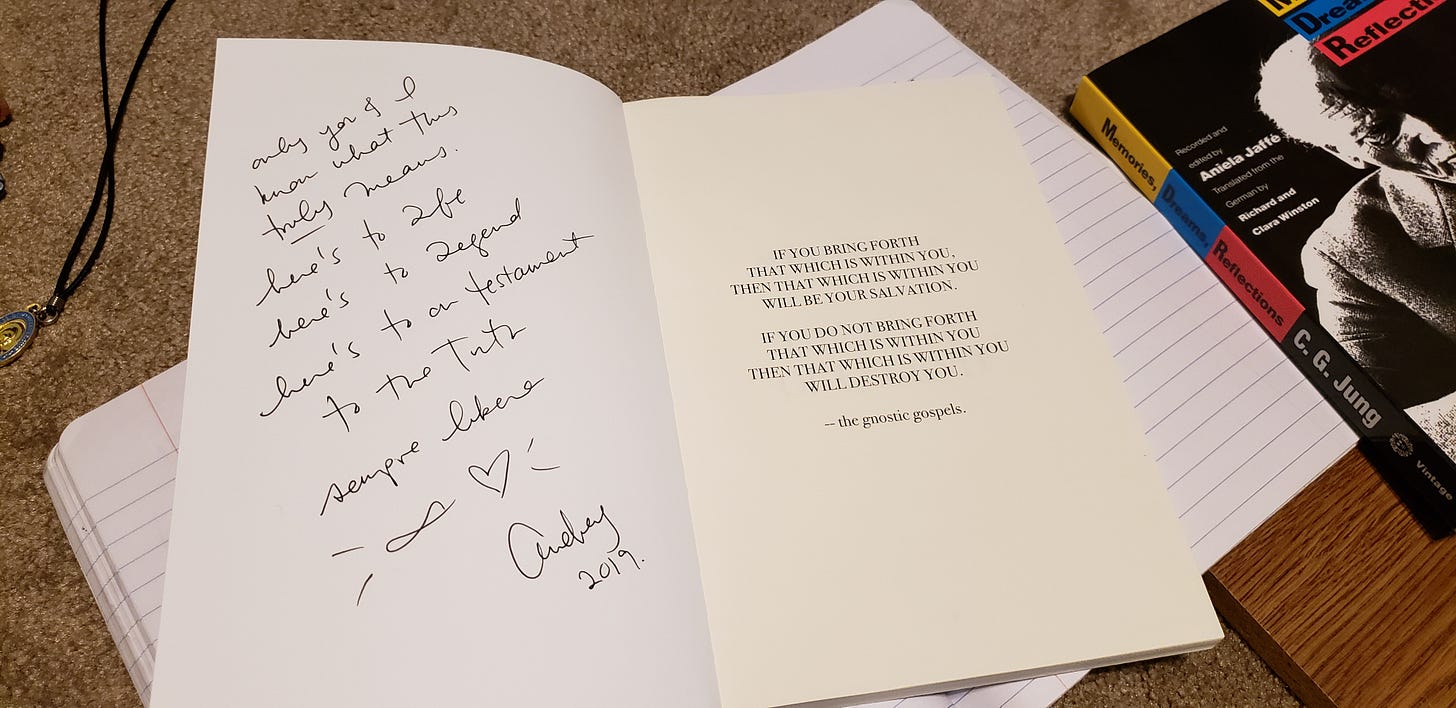 only you & I
know what this
truly means.
here's to Life
here's to Legend
here's to our testament
to the Truth
sempre libera
Audrey
2019.
IF YOU BRING FORTH
THAT WHICH IS WITHIN YOU,
THEN THAT WHICH IS WITHIN YOU
WILL BE YOUR SALVATION.
IF YOU DO NOT BRING FORTH
THAT WHICH IS WITHIN YOU
THEN THAT WHICH IS WITHIN YOU
WILL DESTROY YOU.
-- the gnostic gospels.
Recorded and
edited by
Aniela Jaffé
Translated from the
German by
Richard and
Clara Winston
Memories, Dreams, Reflections C. G. Jung Vintage